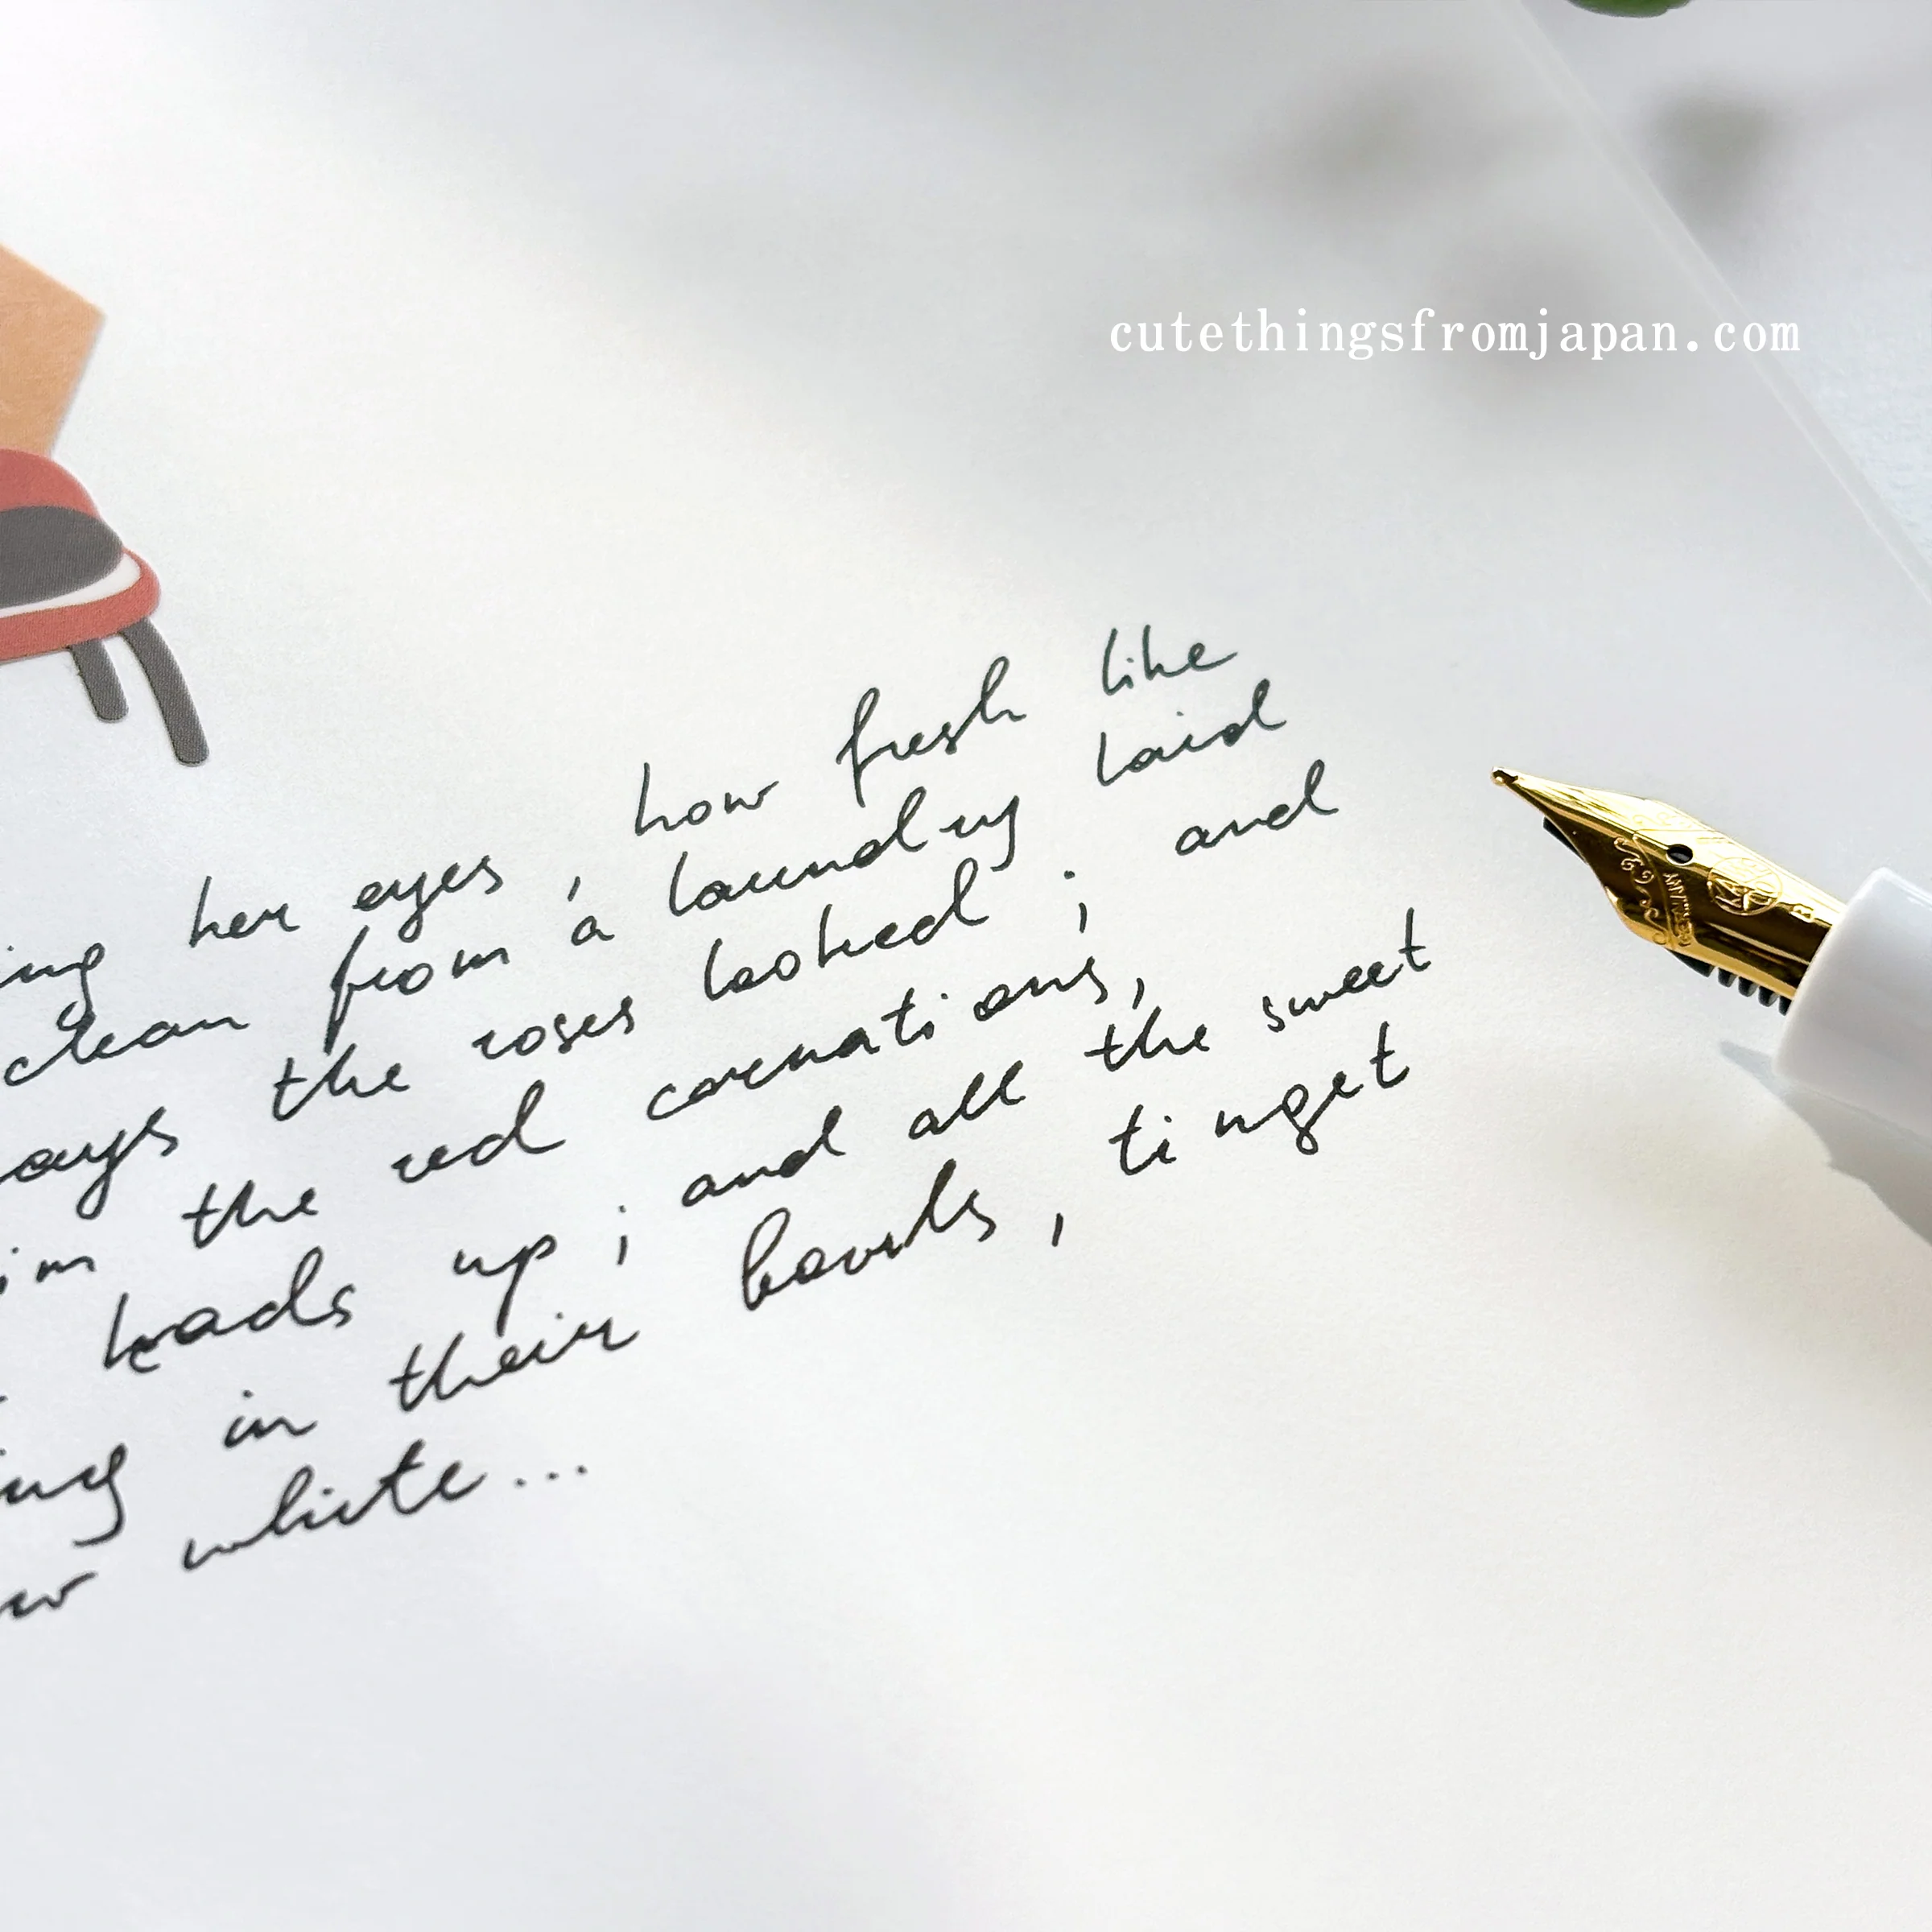 cutethingsfromjapan.com
ing her eyes, how fresh like
clean from a laundry laid
ays the roses looked; and
im the red carnations,
heads up; and all the sweet
ing in their bowls, tinget
ow white...
GERMANY
B